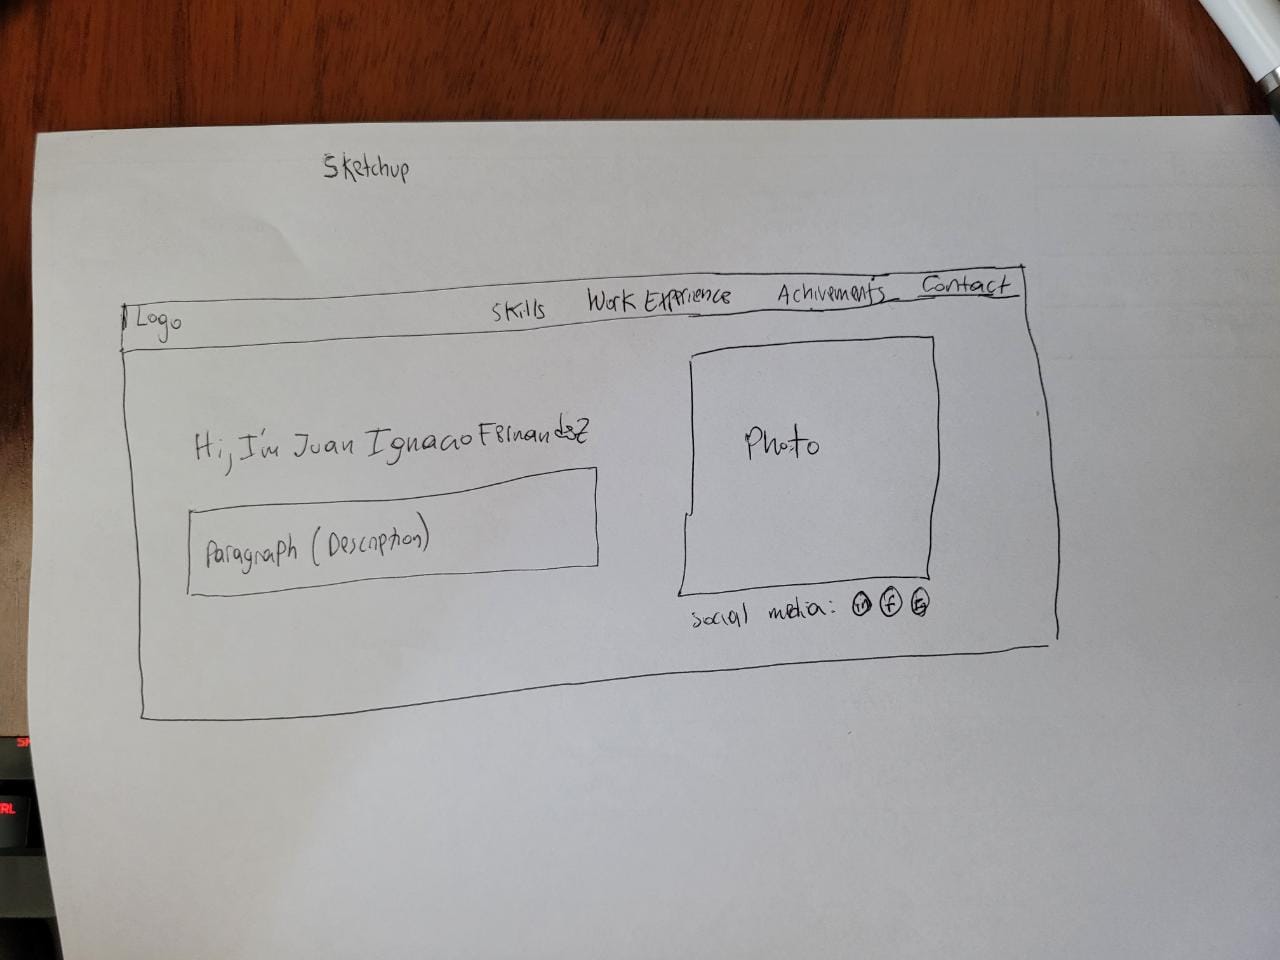 Sketchup
Logo
Skills
Work Experience
Achivements
Contact
Hi, I'm Juan Ignacio Fernandez
Paragraph (Description)
Photo
social media: in f
RL